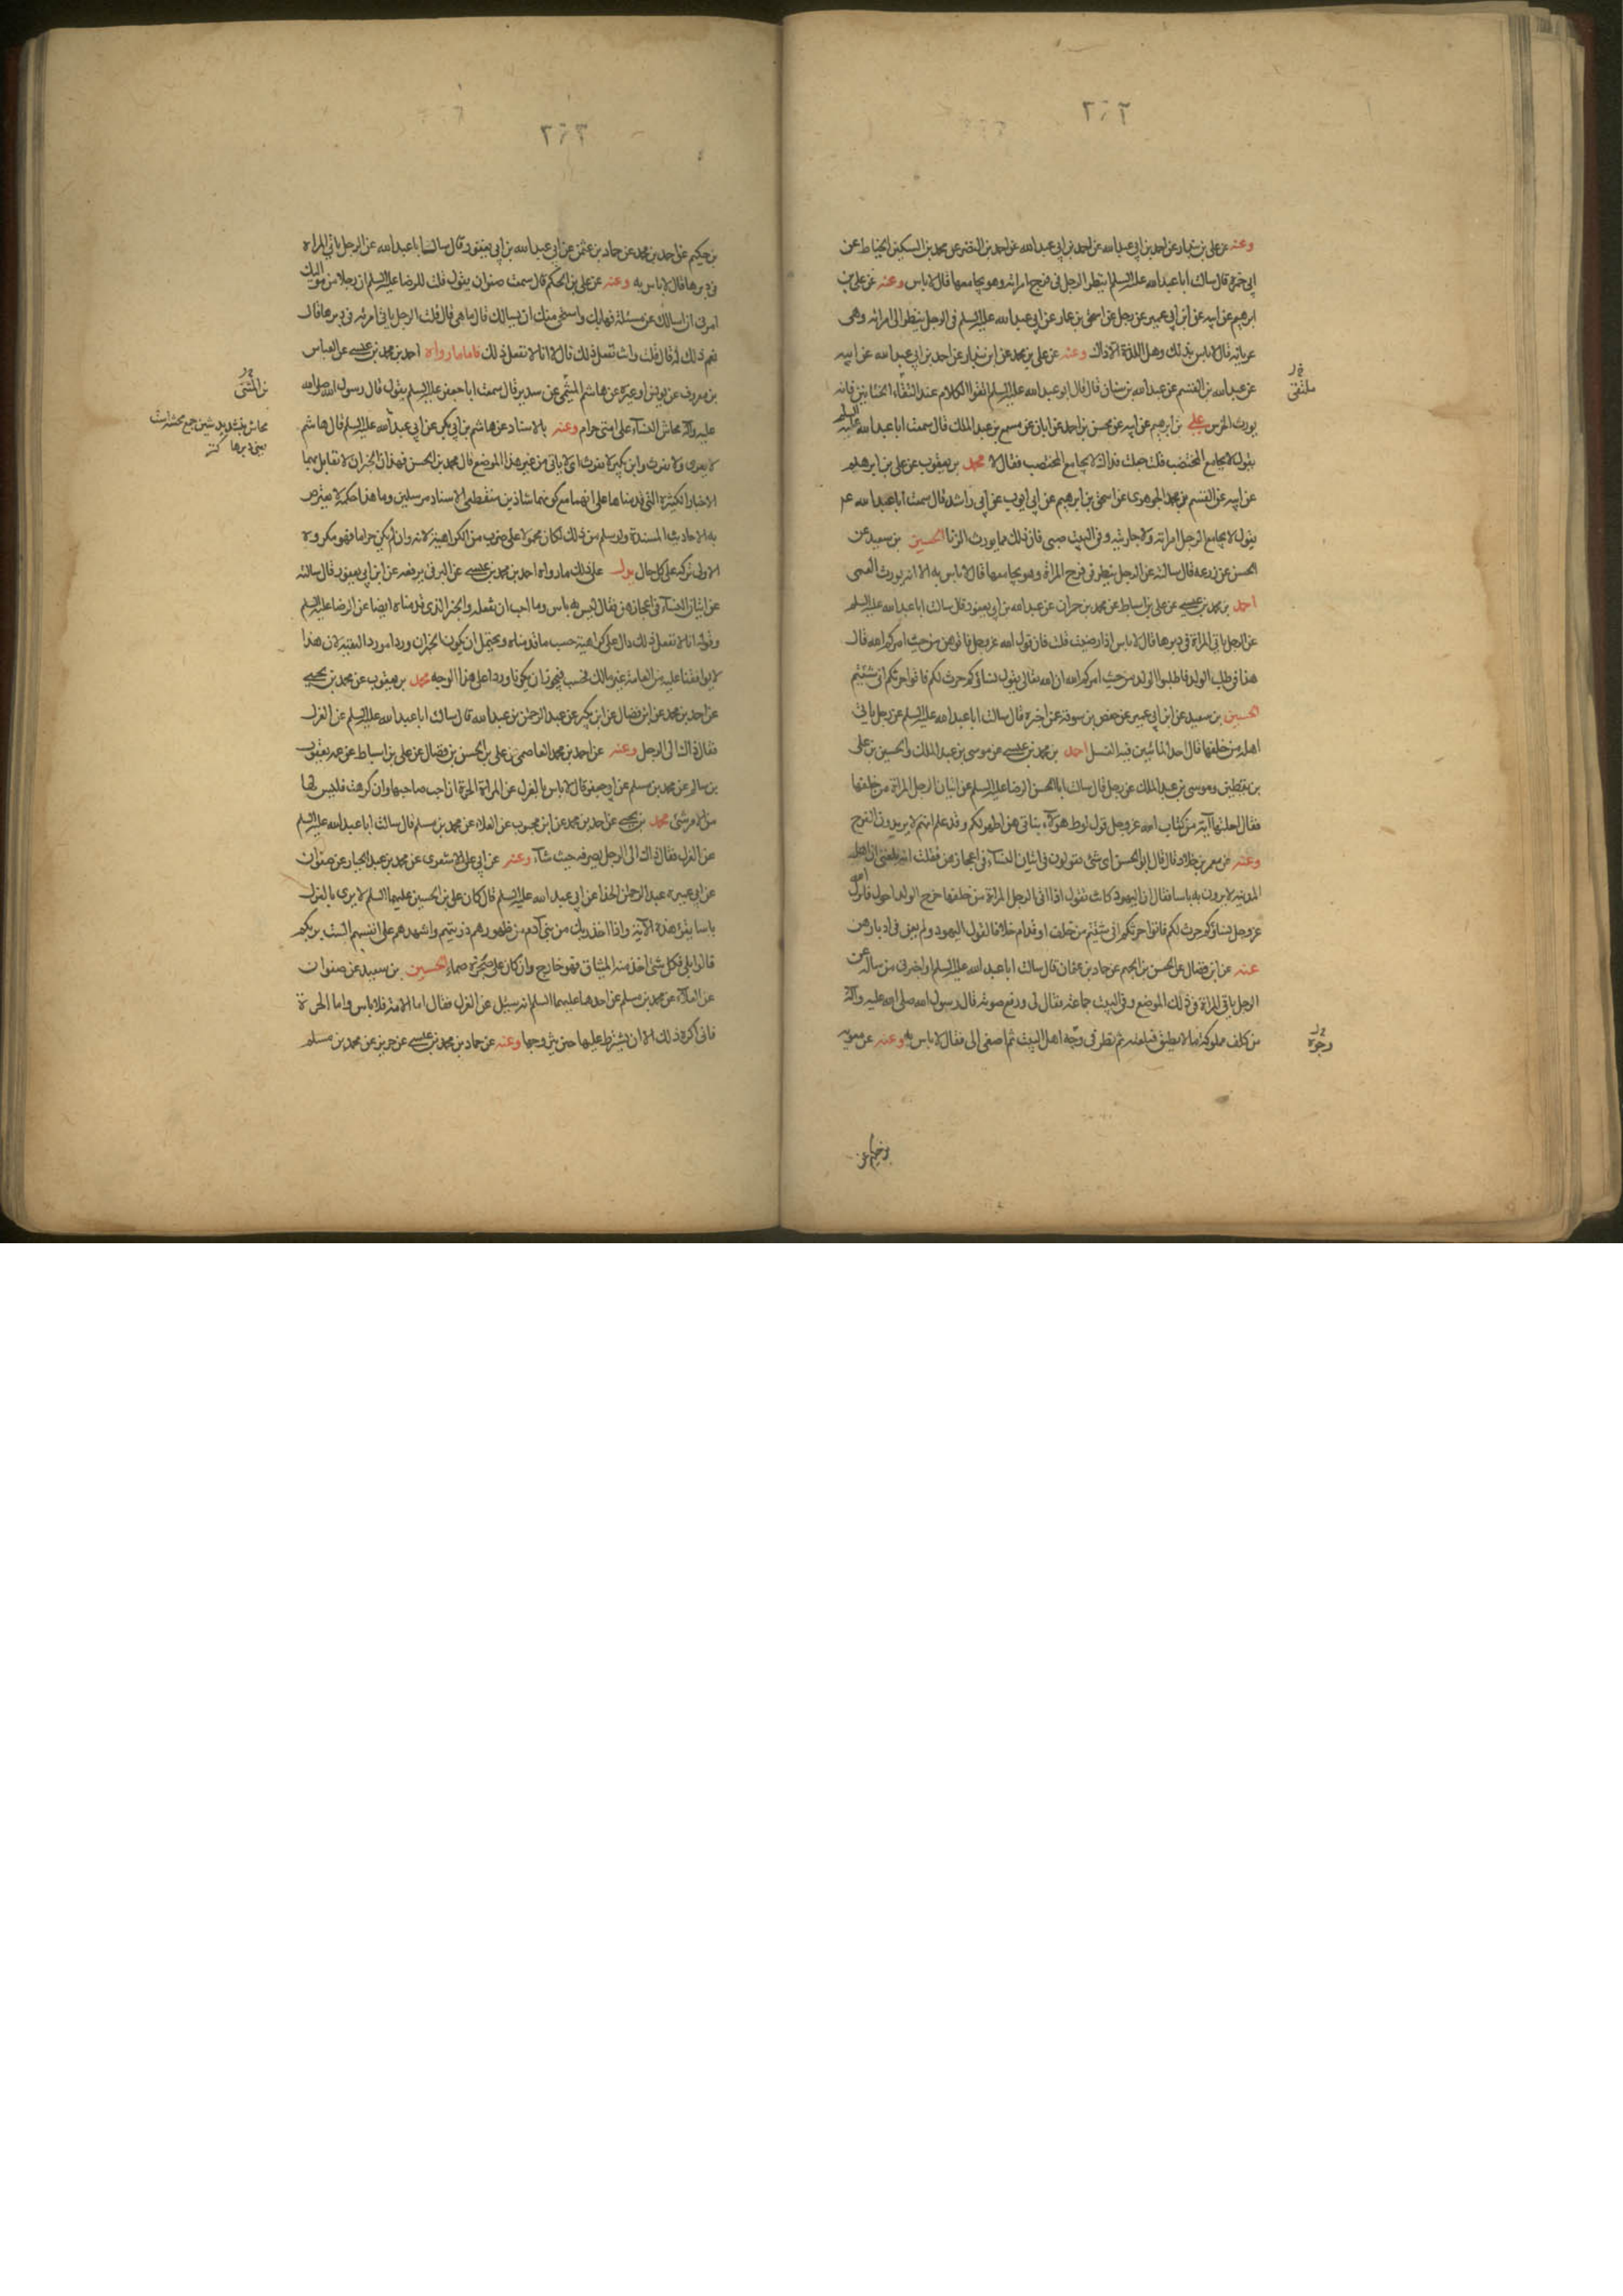 وعنه عن علي بن بندار عن احمد بن ابي عبدالله عن احمد بن ابي عبدالله عن احمد بن النضر عن محمد بن السكين الحناط عن
ابي حمزة قال سالت اباعبدالله عليه السلم اينظر الرجل في فرج امراته وهو يجامعها قال لاباس وعنه عن علي بن
ابرهيم عن ابيه عن ابن ابي عمير عن رجل عن اسحق بن عمار عن ابي عبدالله عليه السلم في الرجل ينظر الى امراته وهي
عريانه قال لاباس بذلك وهل اللذة الا ذاك وعنه عن علي بن محمد عن ابن بندار عن احمد بن ابي عبدالله عن ابيه
عن عبدالله بن القسم عن عبدالله بن سنان قال قال ابو عبدالله عليه السلم اتقوا الكلام عند التقاء الختانين فانه
ملتقى
يورث الخرس علي بن ابرهيم عن ابيه عن محسن بن احمد عن ابان عن مسمع بن عبد الملك قال سمعت اباعبدالله عليه السلم
يقول لا يجامع المختضب قلت جعلت فداك لا يجامع المختضب فقال لا محمد بن يعقوب عن علي بن ابرهيم
عن ابيه عن القسم بن محمد الجوهري عن اسحق بن ابرهيم عن ابي ايوب عن ابي راشد قال سمعت اباعبدالله عم
يقول لا يجامع الرجل امراته ولا جاريته وفي البيت صبي فان ذلك مما يورث الزنا الحسين بن سعيد عن
الحسن عن زرعه قال سالته عن الرجل ينظر في فرج المراة وهو يجامعها قال لاباس به الا انه يورث العمى
احمد بن محمد بن عيسى عن علي بن اسباط عن محمد بن حمران عن عبدالله بن ابي يعفور قال سالت اباعبدالله عليه السلم
عن الرجل ياتي المراة في دبرها قال لاباس اذا رضيت قلت فاين قول الله عز وجل فاتوهن من حيث امركم الله قال
هذا في طلب الولد فاطلبوا الولد من حيث امركم الله ان الله تعالى يقول نساؤكم حرث لكم فاتوا حرثكم انى شئتم
الحسين بن سعيد عن ابن ابي عمير عن حفص بن سوقة عمن اخبره قال سالت اباعبدالله عليه السلم عن رجل ياتي
اهله من خلفها قال احد الماتيين فيه الغسل احمد بن محمد بن عيسى عن موسى بن عبد الملك والحسين بن علي
بن يقطين وموسى بن عبد الملك عن رجل قال سالت ابا الحسن الرضا عليه السلم عن اتيان الرجل المراة من خلفها
فقال احلتها آية من كتاب الله عز وجل قول لوط هؤلاء بناتي هن اطهر لكم وقد علم انهم لا يريدون الفرج
وعنه عن معمر بن خلاد قال قال ابو الحسن اي شئ يقولون في اتيان النساء في اعجازهن فقلت انه بلغني ان اهل
المدينة لا يرون به باسا فقال ان اليهود كانت تقول اذا اتى الرجل المراة من خلفها خرج الولد احول فانزل الله
عز وجل نساؤكم حرث لكم فاتوا حرثكم انى شئتم من خلف او قدام خلافا لقول اليهود ولم يعن في ادبارهن
عنه عن ابن فضال عن الحسن بن الجهم عن حماد بن عثمان قال سالت اباعبدالله عليه السلم او اخبرني من ساله عن
الرجل ياتي المراة في ذلك الموضع وفي البيت جماعة فقال لي ورفع صوته قال رسول الله صلى الله عليه وآله
من كلف مملوكه ما لا يطيق فليعنه ثم نظر في وجه اهل البيت ثم اصغى الى فقال لاباس به وعنه عن معوية
وجوه
بن حكيم عن
بن حكيم عن احمد بن محمد عن حماد بن عثمن عن ابي عبدالله بن ابي يعفور قال سالت اباعبدالله عن الرجل ياتي المراه
في دبرها قال لاباس به وعنه عن علي بن الحكم قال سمعت صفوان يقول قلت للرضا عليه السلم ان رجلا من مواليك
امرني ان اسالك عن مسئلة فهابك واستحيى منك ان يسالك قال ما هي قال قلت الرجل ياتي امرته في دبرها قال
نعم ذلك له قال قلت وانت تفعل ذلك قال انا لا نفعل ذلك فاما ما رواه احمد بن محمد بن عيسى عن العباس
بن معروف عن يونس او غيره عن هاشم المثنى عن سدير قال سمعت اباجعفر عليه السلم يقول قال رسول الله صلى الله
بن المثنى
عليه وآله محاش النساء على امتي حرام وعنه بالاسناد عن هاشم بن ابي بكر عن ابي عبدالله عليه السلم قال هاشم
محاش بتشديد شين جمع محشه است
يعني دبرها كنز
لا يعرى ولا يفرث وابن بكير لا يفرث اي لا ياتي من غير هذا الموضع قال محمد بن الحسن فهذان الخبران لا تقابل بهما
الاخبار الكثيرة التي قدمناها على انهما مع كونهما شاذين منقطعي الاسناد مرسلين وما هذا حكمه لا يعترض
به الاحاديث المسندة ولو سلم من ذلك لكان محمولا على ضرب من الكراهية لانه وان لم يكن حراما فهو مكروه
الاولى تركه على كل حال يدل على ذلك ما رواه احمد بن محمد بن عيسى عن البرقي يرفعه عن ابن ابي يعفور قال سالته
عن اتيان النساء في اعجازهن فقال ليس به باس وما احب ان تفعله والخبر الذي قدمناه ايضا عن الرضا عليه السلم
وقوله انا لا نفعل ذلك دال على كراهية حسب ما قدمناه ويحتمل ان يكون الخبران وردا مورد التقية لان هذا
لا يوافقنا عليه من العامة غير مالك فحسب فيجوز ان يكونا وردا على هذا الوجه محمد بن يعقوب عن محمد بن يحيى
عن احمد بن محمد عن ابن فضال عن ابن بكير عن عبد الرحمن بن عبدالله قال سالت اباعبدالله عليه السلم عن العزل
فقال ذاك الى الرجل وعنه عن احمد بن محمد العاصمي عن علي بن الحسن بن فضال عن علي بن اسباط عن عمه يعقوب
بن سالم عن محمد بن مسلم عن ابي جعفر قال لاباس بالعزل عن المراة الحرة ان احب صاحبها وان كرهت فليس لها
من الامر شئ محمد بن يحيى عن احمد بن محمد عن ابن محبوب عن العلاء عن محمد بن مسلم قال سالت اباعبدالله عليه السلم
عن العزل فقال ذاك الى الرجل يصرفه حيث شاء وعنه عن ابي علي الاشعري عن محمد بن عبد الجبار عن صفوان
عن ابي عميرة عبد الرحمن الحذا عن ابي عبدالله عليه السلم قال كان علي بن الحسين عليهما السلم لا يرى بالعزل
باسا يقرء هذه الآية واذ اخذ ربك من بني آدم من ظهورهم ذريتهم واشهدهم على انفسهم الست بربكم
قالوا بلى فكل شئ اخذ منه الميثاق فهو خارج وان كان على صخرة صماء الحسين بن سعيد عن صفوان
عن العلاء عن محمد بن مسلم عن احدهما عليهما السلم انه سئل عن العزل فقال اما الامة فلاباس واما الحرة
فاني اكره ذلك الا ان يشترط عليها حين يتزوجها وعنه عن حماد بن محمد بن عيسى عن حريز عن محمد بن مسلم